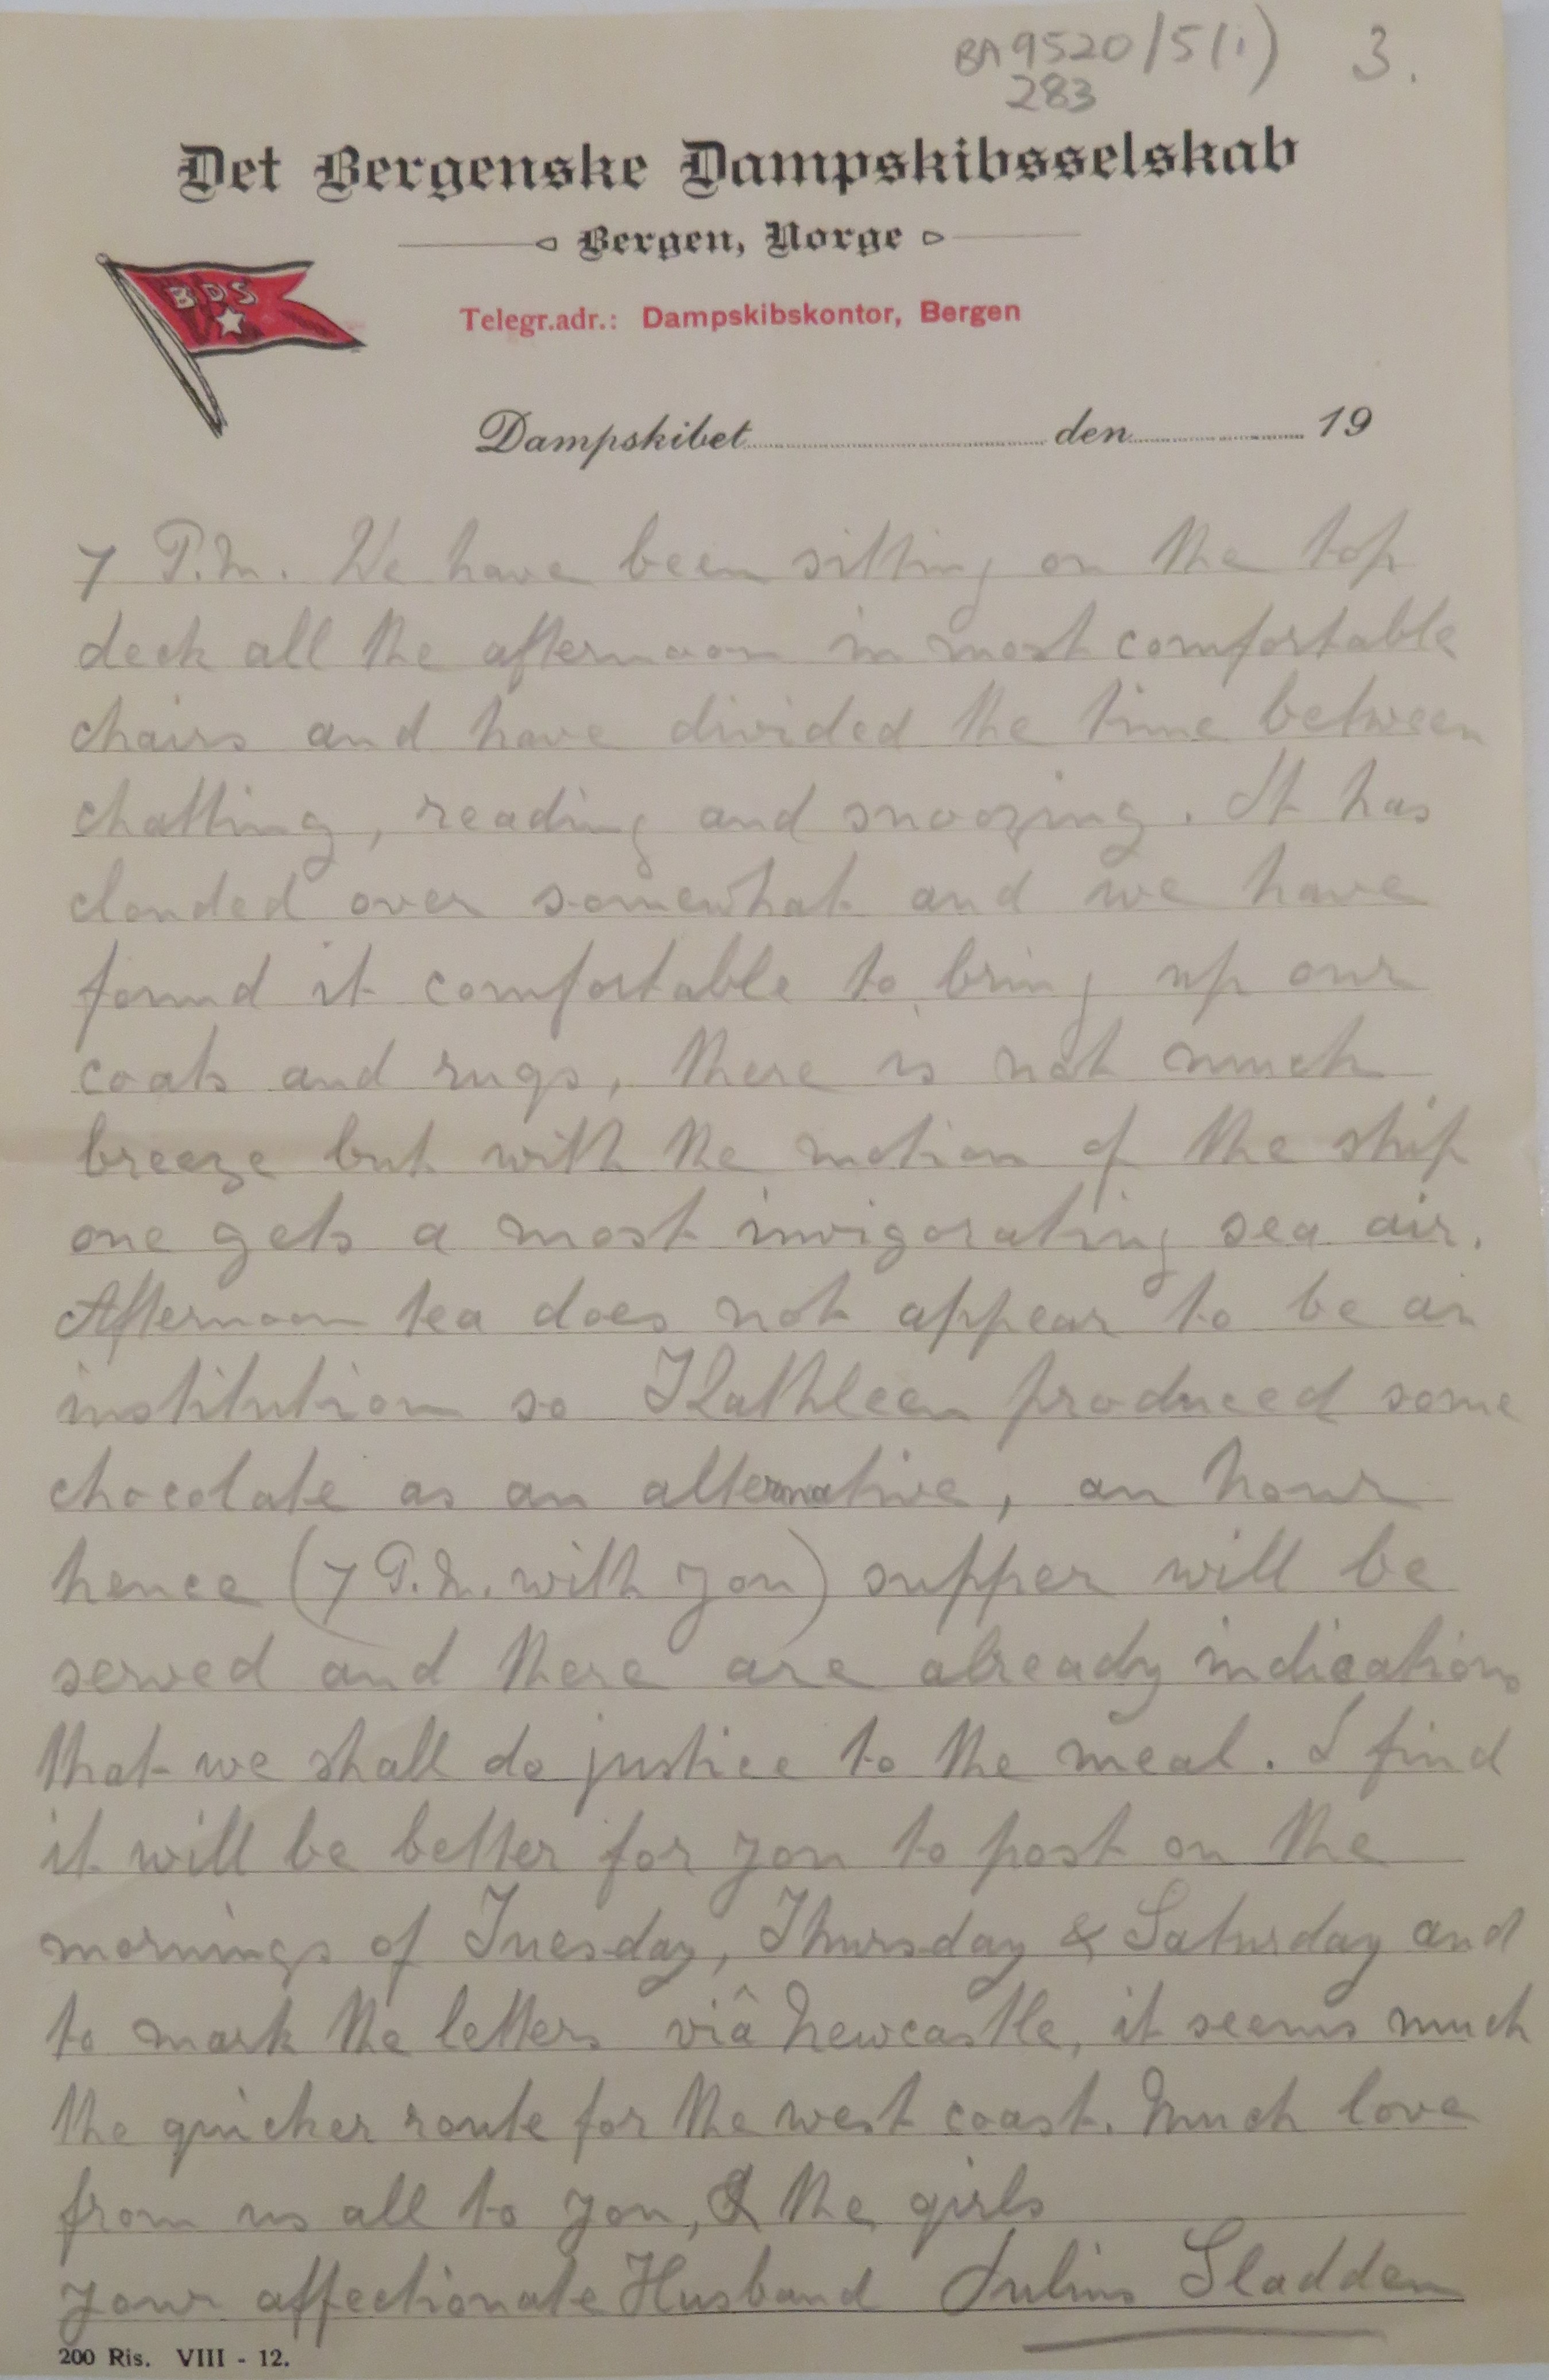 BA9520/5(i) 3.
283
Det Bergenske Dampskibsselskab
Bergen, Norge
BDS
Telegr.adr.: Dampskibskontor, Bergen
Dampskibet den 19
7 P.M. We have been sitting on the top
deck all the afternoon in most comfortable
chairs and have divided the time between
chatting, reading and snoozing. It has
clouded over somewhat and we have
found it comfortable to bring up our
coats and rugs, there is not much
breeze but with the motion of the ship
one gets a most invigorating sea air.
Afternoon tea does not appear to be an
institution so Kathleen produced some
chocolate as an alternative, an hour
hence (7 P.M. with you) supper will be
served and there are already indications
that we shall do justice to the meal. I find
it will be better for you to post on the
mornings of Tuesday, Thursday & Saturday and
to mark the letters viâ Newcastle, it seems much
the quicker route for the west coast. Much love
from us all to you, & the girls
your affectionate Husband Julius Sladden
200 Ris. VIII - 12.